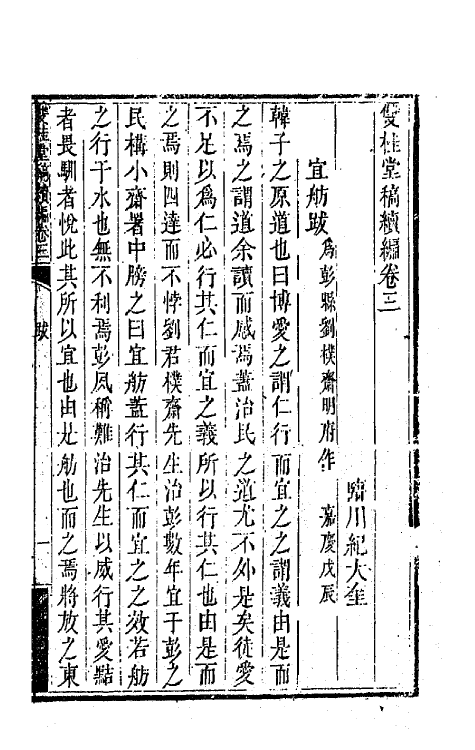 雙桂堂稿續編卷三
臨川紀大奎
宜舫跋 為彭縣劉樸齋明府作 嘉慶戊辰
韓子之原道也曰博愛之謂仁行而宜之之謂義由是而
之焉之謂道余讀而感焉蓋治民之道尤不外是矣徒愛
不足以爲仁必行其仁而宜之義所以行其仁也由是而
之焉則四達而不悖劉君樸齋先生治彭數年宜于彭之
民構小齋署中牓之曰宜舫蓋行其仁而宜之之效若舫
之行于水也無不利焉彭夙稱難治先生以威行其愛黠
者畏馴者悅此其所以宜也由是舫也而之焉將放之東
雙桂堂稿續編卷三
跋
一